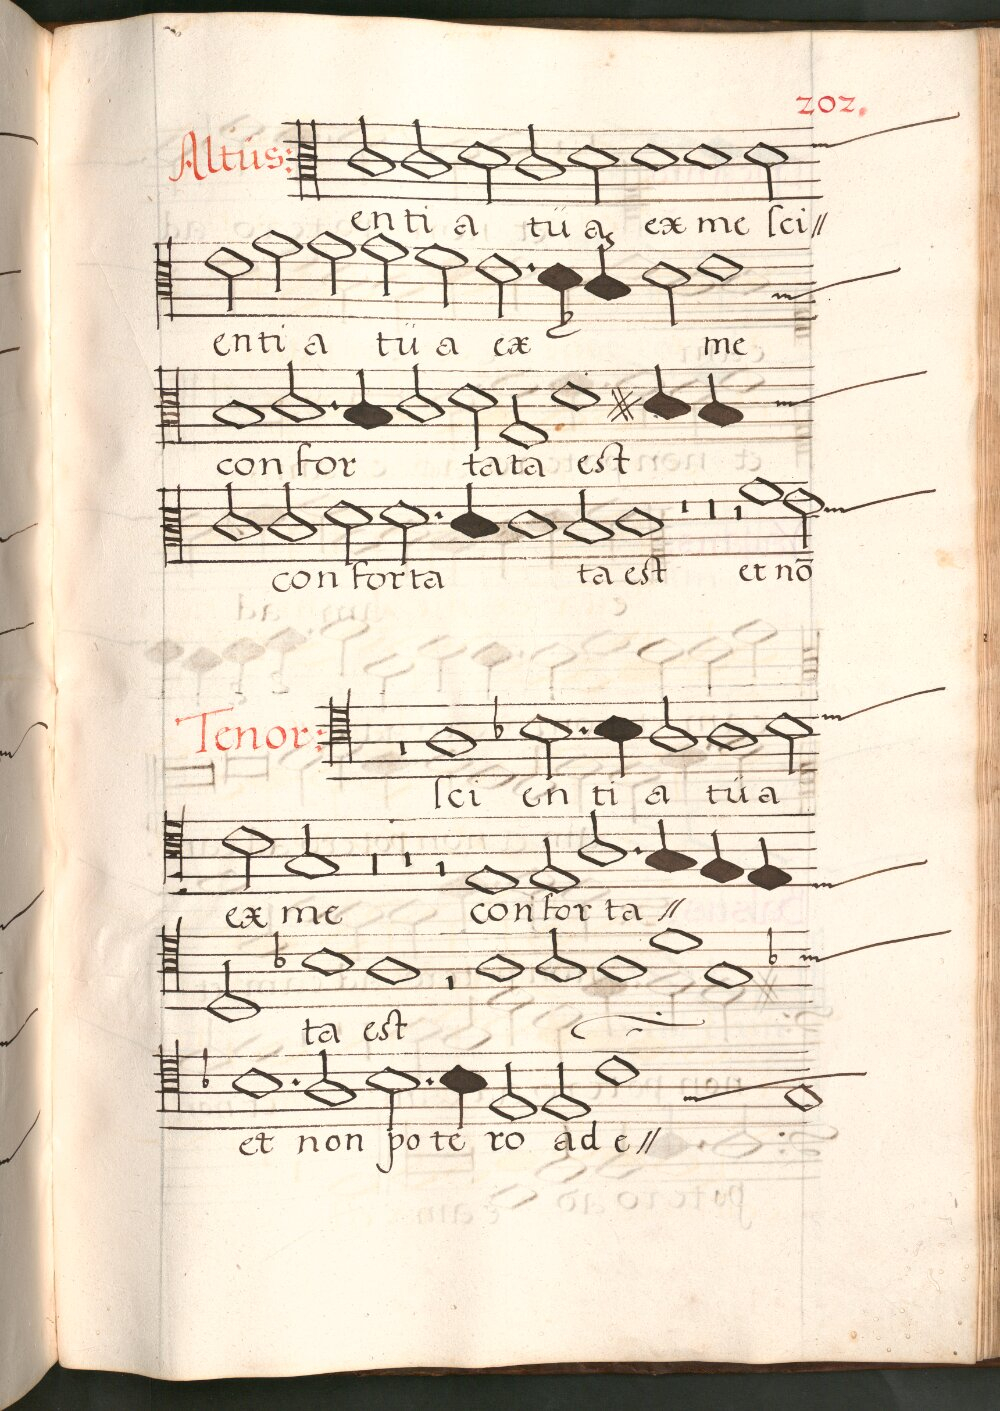 202.
Altüs:
en ti a tü a ex me sci//
en ti a tü a ex me
con for ta ta est
con for ta ta est et nō
Tenor:
sci en ti a tü a
ex me con for ta //
ta est
et non po te ro ad e //